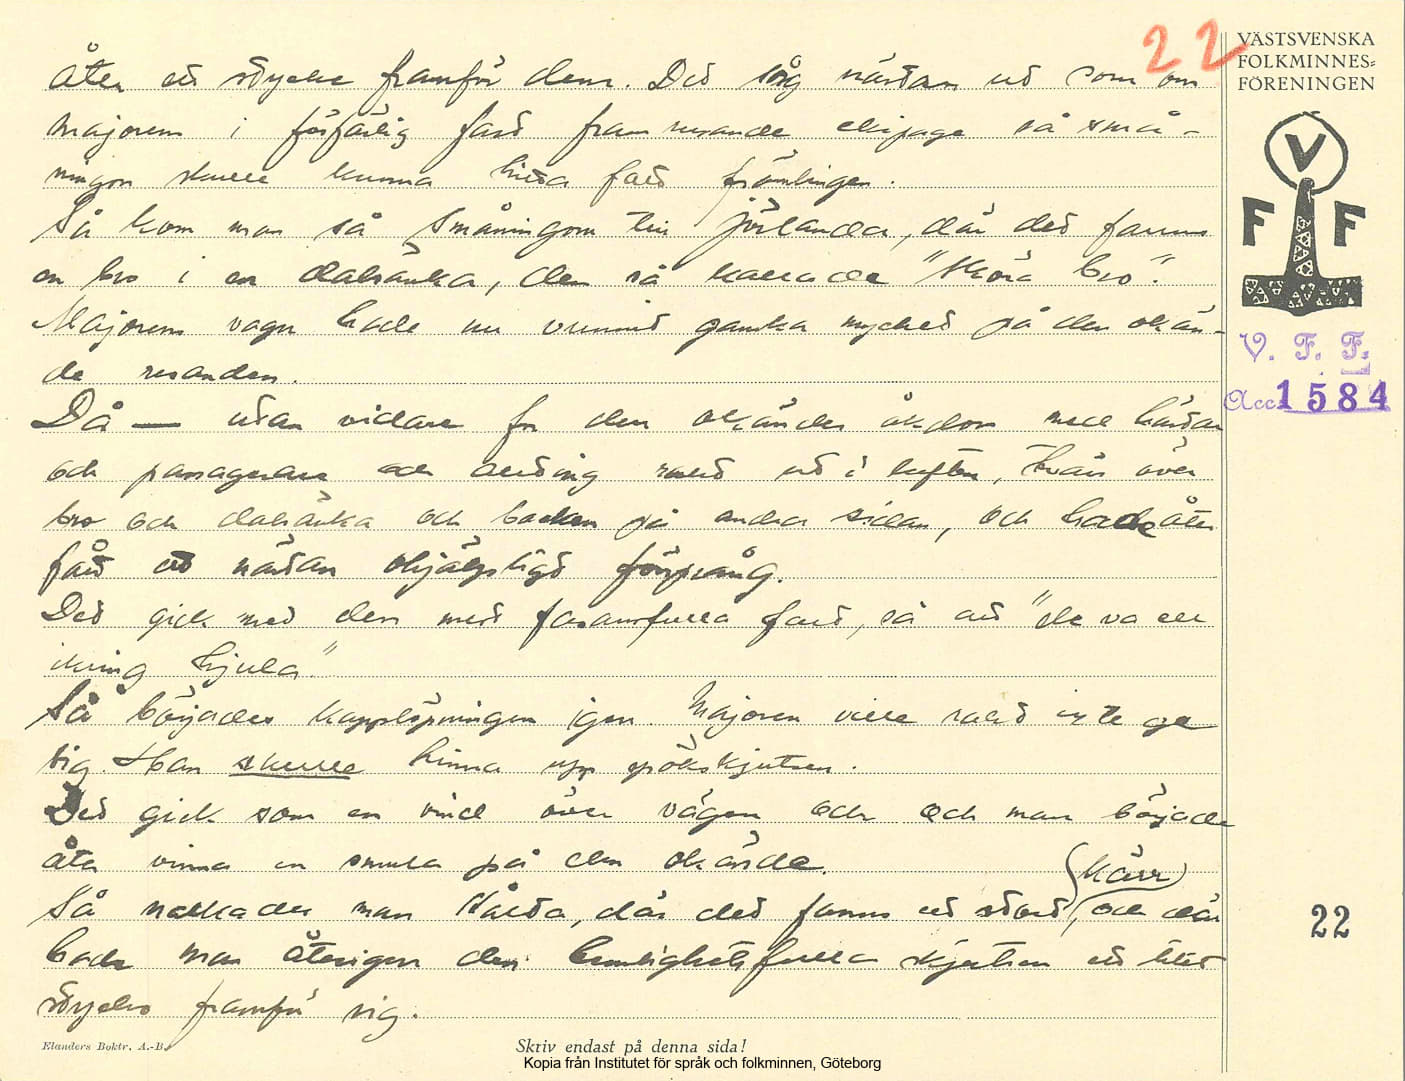 22
VÄSTSVENSKA
FOLKMINNES=
FÖRENINGEN
V
F F
V. F. F.
Acc. 1584
åter ett stycke framför dem. Det såg nästan ut som om
majorens i förfärlig fart framrusande ekipage så små-
ningom skulle kunna hinna fatt främlingen.
Så kom man så småningom till Jörlanda, där det fanns
en bro i en dalsänka, den så kallade "Sköra bro".
Majorens vagn hade nu vunnit ganska mycket på den okän-
de resanden.
Då — utan vidare for den okändes åkdon med hästar
och passagerare och allting rakt ut i luften, tvärs över
bro och dalsänka och backen på andra sidan, och hade åter
fått ett nästan ohjälpligt försprång.
Det gick med den mest fasansfulla fart, så att "de va ell
ikring hjula".
Så började kapplöpningen igen. Majoren ville rakt inte ge
sig. Han skulle hinna upp spökskjutsen.
Det gick som en vind över vägen och och man började
åter vinna en smula på den okände.
Så nalkades man Kårda, där det fanns ett stort (kärr), och där
hade man återigen den hemlighetsfulla skjutsen ett litet
stycke framför sig.
22
Elanders Boktr. A.-B.
Skriv endast på denna sida!
Kopia från Institutet för språk och folkminnen, Göteborg